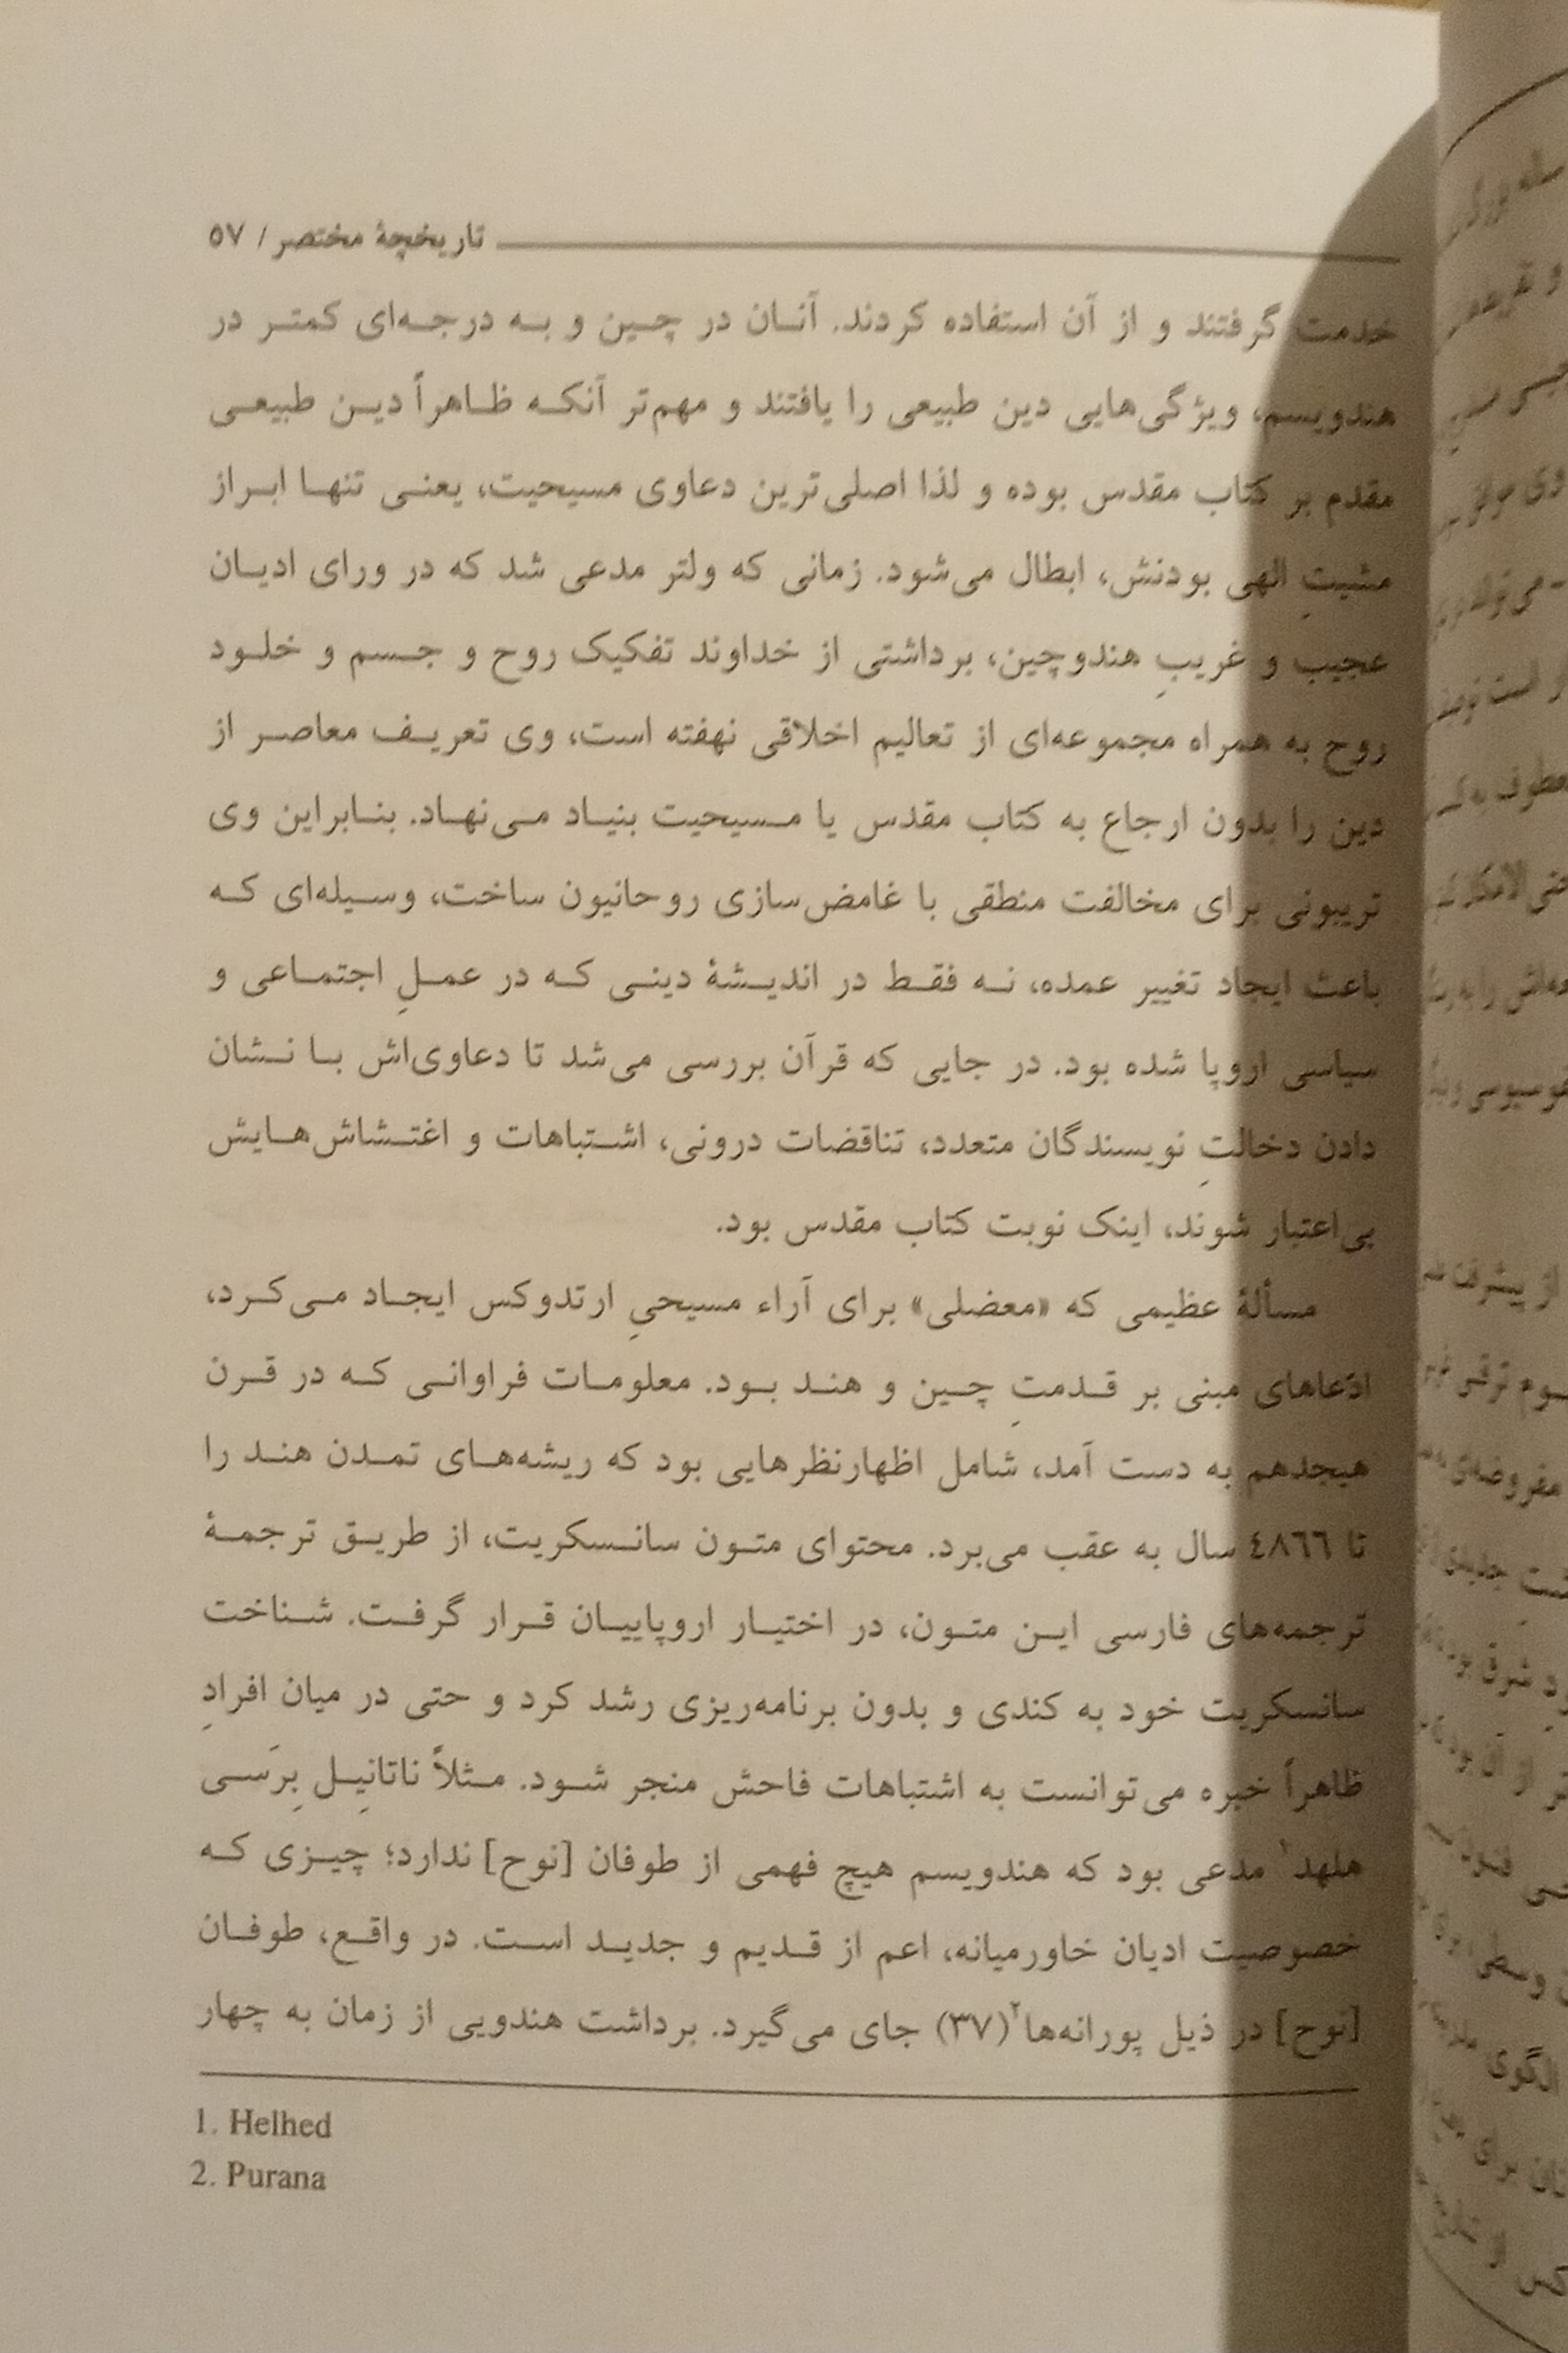 تاریخچهٔ مختصر / ٥٧
خدمت گرفتند و از آن استفاده کردند. آنان در چین و به درجه‌ای کمتر در
هندویسم، ویژگی‌هایی دین طبیعی را یافتند و مهم‌تر آنکه ظاهراً دین طبیعی
مقدم بر کتاب مقدس بوده و لذا اصلی‌ترین دعاوی مسیحیت، یعنی تنها ابراز
مشیتِ الهی بودنش، ابطال می‌شود. زمانی که ولتر مدعی شد که در ورای ادیان
عجیب و غریبِ هندوچین، برداشتی از خداوند تفکیک روح و جسم و خلود
روح به همراه مجموعه‌ای از تعالیم اخلاقی نهفته است، وی تعریف معاصر از
دین را بدون ارجاع به کتاب مقدس یا مسیحیت بنیاد می‌نهاد. بنابراین وی
تریبونی برای مخالفت منطقی با غامض‌سازی روحانیون ساخت، وسیله‌ای که
باعث ایجاد تغییر عمده، نه فقط در اندیشهٔ دینی که در عملِ اجتماعی و
سیاسی اروپا شده بود. در جایی که قرآن بررسی می‌شد تا دعاوی‌اش با نشان
دادن دخالتِ نویسندگان متعدد، تناقضات درونی، اشتباهات و اغتشاش‌هایش
بی‌اعتبار شوند، اینک نوبت کتاب مقدس بود.
مسألهٔ عظیمی که «معضلی» برای آراء مسیحیِ ارتدوکس ایجاد می‌کرد،
ادّعاهای مبنی بر قدمتِ چین و هند بود. معلومات فراوانی که در قرن
هیجدهم به دست آمد، شامل اظهارنظرهایی بود که ریشه‌های تمدن هند را
تا ٤٨٦٦ سال به عقب می‌برد. محتوای متون سانسکریت، از طریق ترجمهٔ
ترجمه‌های فارسی این متون، در اختیار اروپاییان قرار گرفت. شناخت
سانسکریت خود به کندی و بدون برنامه‌ریزی رشد کرد و حتی در میان افرادِ
ظاهراً خبره می‌توانست به اشتباهات فاحش منجر شود. مثلاً ناتانِیل بِرَسی
هلهد۱ مدعی بود که هندویسم هیچ فهمی از طوفان [نوح] ندارد؛ چیزی که
خصوصیت ادیان خاورمیانه، اعم از قدیم و جدید است. در واقع، طوفان
[نوح] در ذیل پورانه‌ها۲(۳۷) جای می‌گیرد. برداشت هندویی از زمان به چهار
1. Helhed
2. Purana